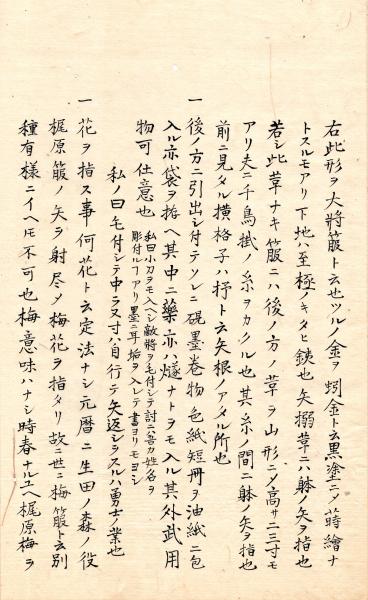 右此形ヲ大將箙ト云也ツルノ金ヲ蚓金ト云黒塗ニノ蒔繪ナ
トスルモアリ下地ハ至極ノキタヒ鉄也矢搦草ニハ躰ノ矢ヲ指也
若シ此草ナキ箙ニハ後ノ方ノ草ヲ山形ニタ高サ二三寸モ
アリ夫ニ千鳥掛ノ糸ヲカクル也其糸ノ間ニ躰ノ矢ヲ指也
前ニ見タル横格子ハ抒ト云矢根ノアタル所也
一 後ノ方ニ引出シ付テソレニ硯墨巻物色紙短冊ヲ油紙ニ包
入ル亦袋ヲ拵ヘ其中ニ藥亦ハ燧ナトヲモ入ル其外武用
物可仕意也 私曰小刀ヲモ入ヘシ敵將ヲ毛付シテ討ニ吾カ姓名ヲ
彫付ルフアリ墨ニ耳垢ヲ入レテ書ヨリモヨシ
私ノ曰毛付シテ中ラ又寸ハ自行テ矢返シラスルハ勇士ノ業也
一 花ヲ指ス事何花ト云定法ナシ元暦ニ生田ノ森ノ役
梶原箙ノ矢ヲ射尽メ梅花ヲ指タリ故ニ世ニ梅箙ト云別
種有様ニイヘ𪜈不可也梅意味ハナシ時春ナルユヘ梶原梅ヲ